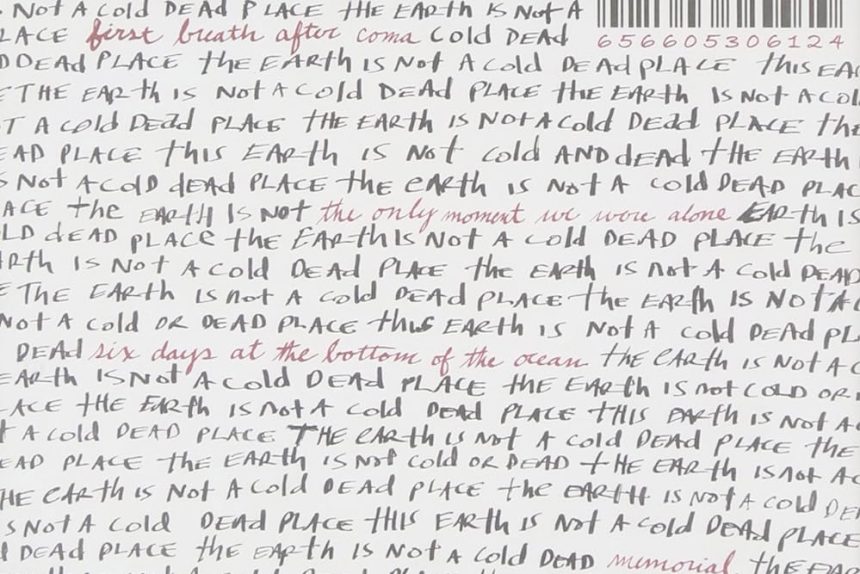 S NOT A COLD DEAD PLACE THE EARTH IS NOT A
LACE first breath after coma COLD DEAD
656605306124
D DEAD PLACE THE EARTH IS NOT A COLD DEAD PLACE THIS EAR
E THE EARTH IS NOT A COLD DEAD PLACE THE EARTH IS NOT A COL
T A COLD DEAD PLACE THE EARTH IS NOT A COLD DEAD PLACE THE
EAD PLACE THIS EARTH IS NOT COLD AND DEAD THE EARTH
S NOT A COLD DEAD PLACE THE EARTH IS NOT A COLD DEAD PLAC
ACE THE EARTH IS NOT the only moment we were alone EARTH IS
LD DEAD PLACE THE EARTH IS NOT A COLD DEAD PLACE THE
RTH IS NOT A COLD DEAD PLACE THE EARTH IS NOT A COLD DEAD
E THE EARTH IS NOT A COLD DEAD PLACE THE EARTH IS NOT A C
NOT A COLD OR DEAD PLACE THIS EARTH IS NOT A COLD DEAD PL
DEAD six days at the bottom of the ocean THE EARTH IS NOT A C
EARTH IS NOT A COLD DEAD PLACE THE EARTH IS NOT COLD OR
LACE THE EARTH IS NOT A COLD DEAD PLACE THIS EARTH IS NOT A
T A COLD DEAD PLACE THE EARTH IS NOT A COLD DEAD PLACE THE
EAD PLACE THE EARTH IS NOT COLD OR DEAD THE EARTH IS NOT A
HE EARTH IS NOT A COLD DEAD PLACE THE EARTH IS NOT A COLD DE
S NOT A COLD DEAD PLACE THIS EARTH IS NOT A COLD DEAD PLACE
DEAD PLACE THE EARTH IS NOT A COLD DEAD memorial THE EAR